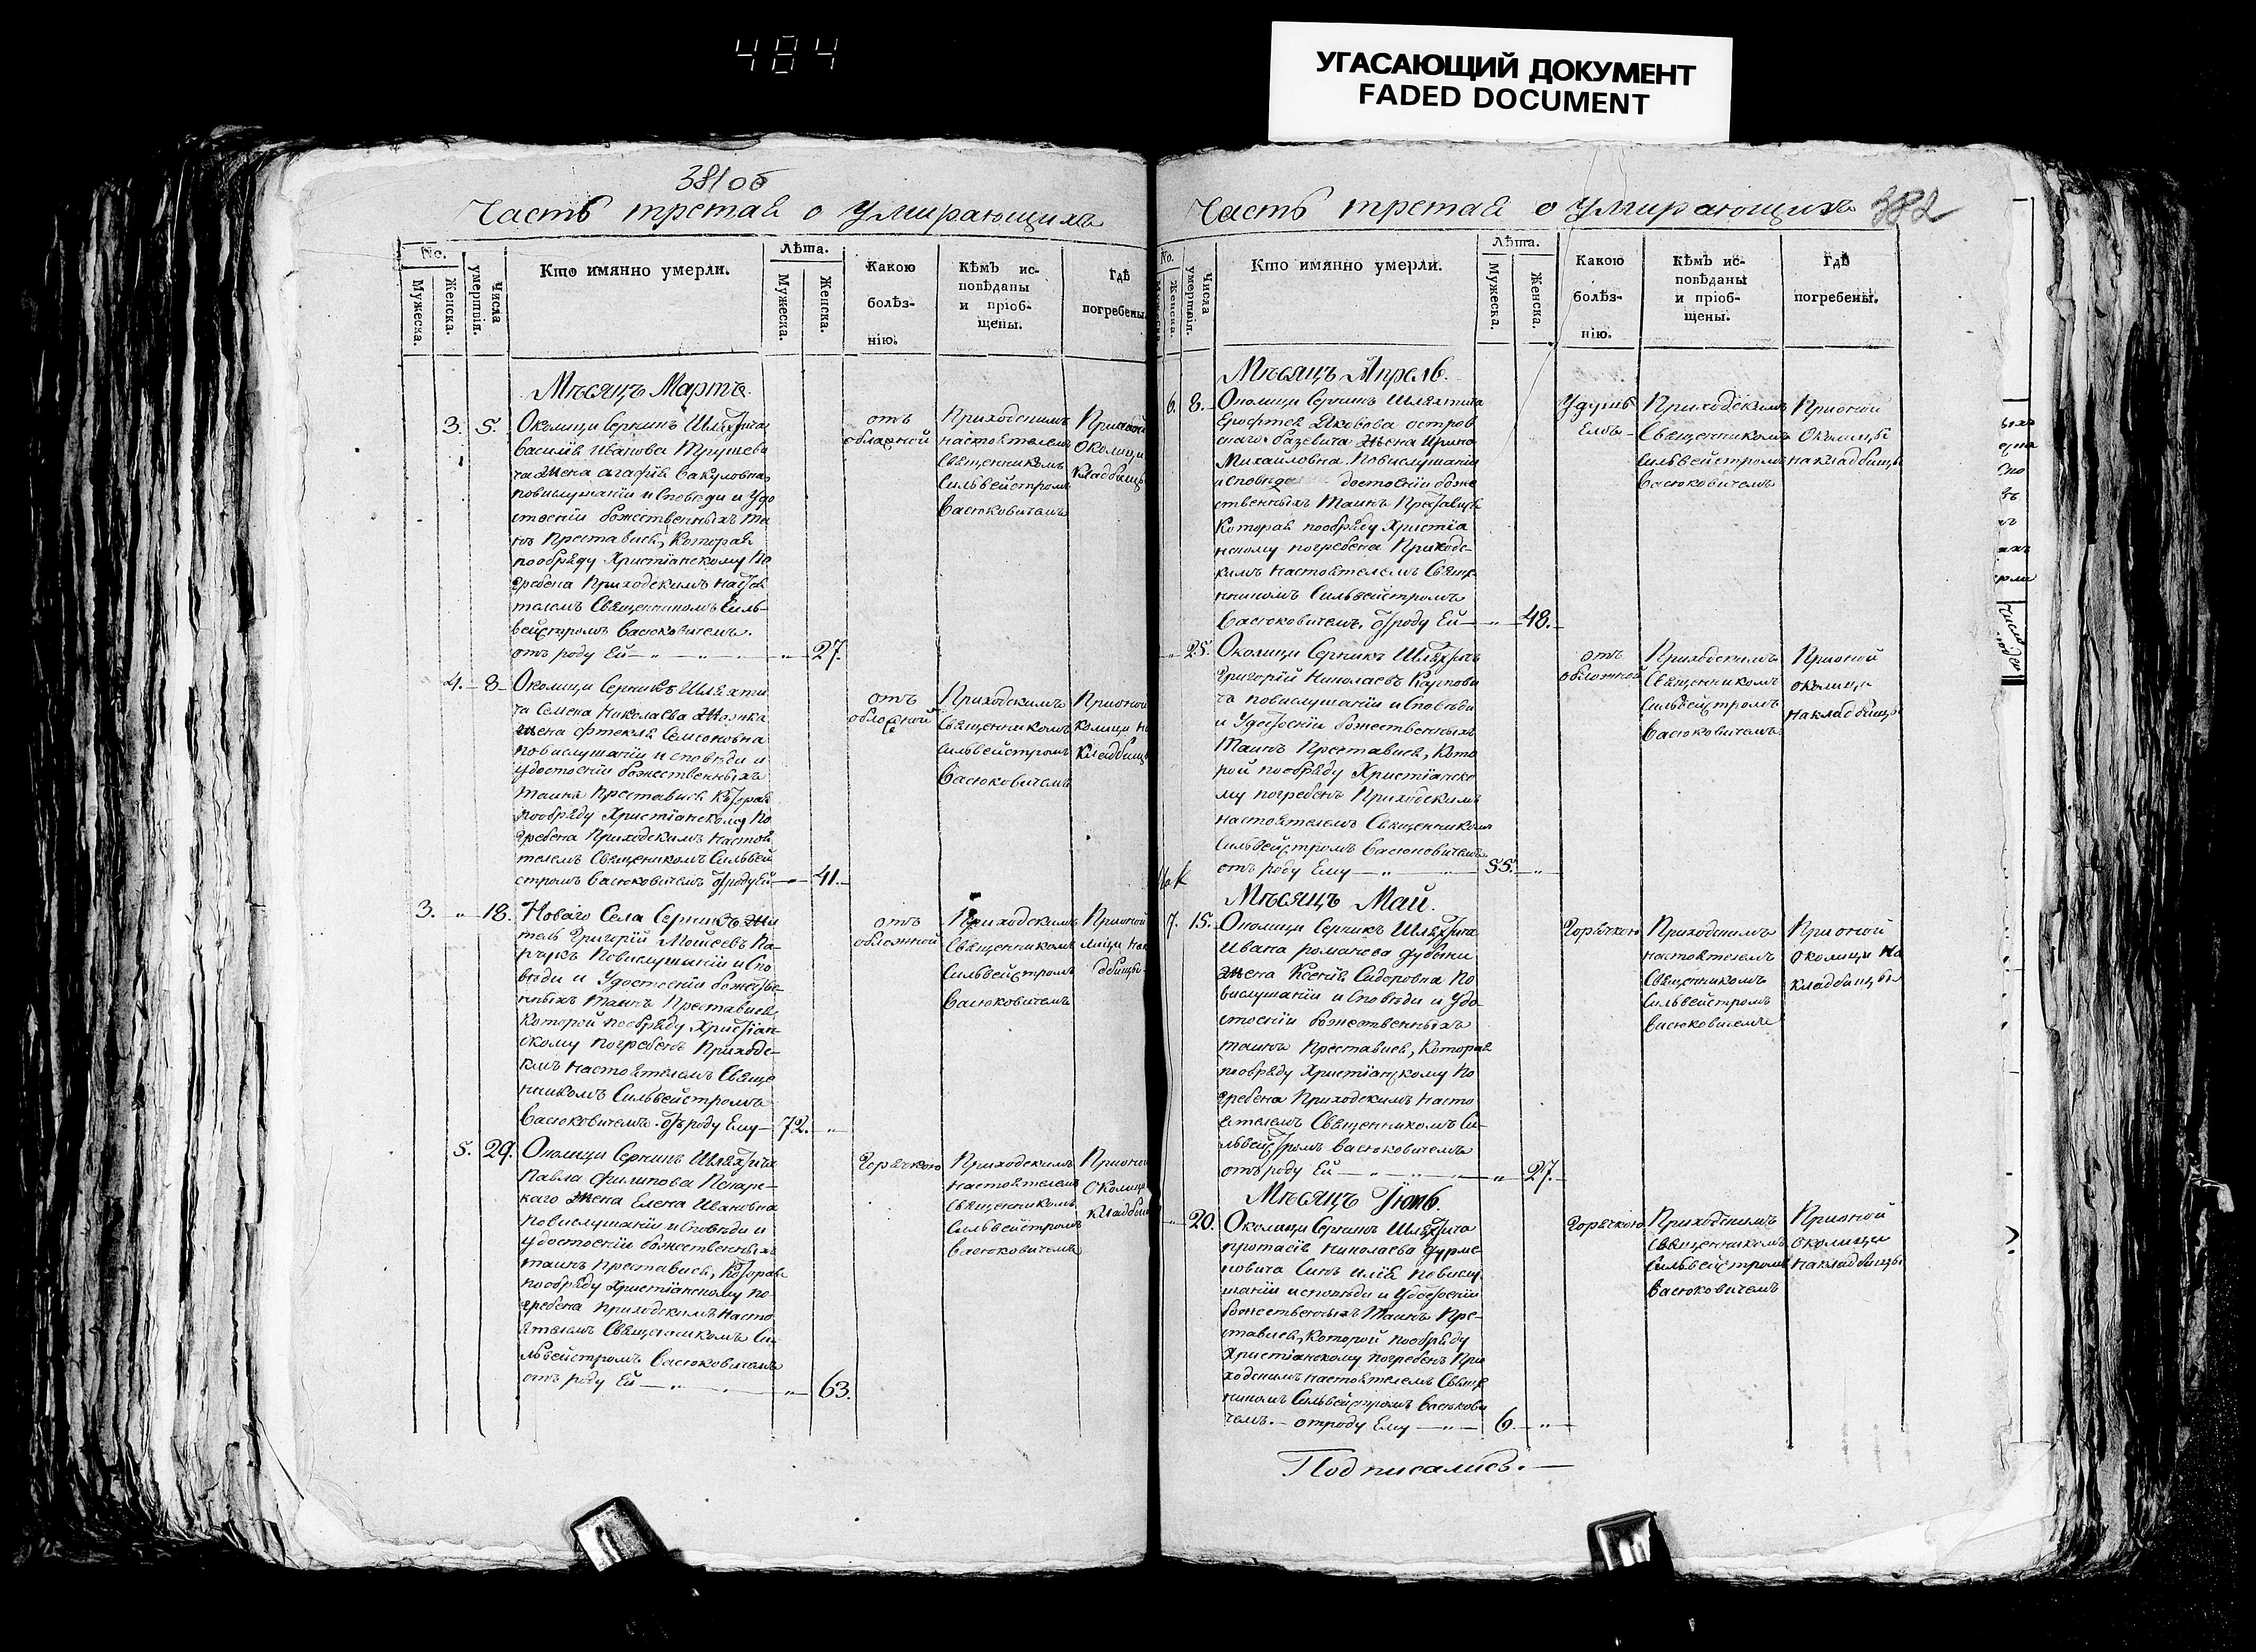 484
УГАСАЮЩИЙ ДОКУМЕНТ
FADED DOCUMENT
381 об
Часть третая о Умирающихъ
No.
Мужеска.
Женска.
Числа умертвія.
Кто имянно умерли.
Лѣта.
Мужеска.
Женска.
Какою болѣз-
нію.
Кѣмъ ис-
повѣданы
и пріоб-
щены.
Гдѣ
погребены.
Мѣсяцъ Мартъ.
3. 5.
Околици Серникъ Шляхтича
Василія Иванова Трушеви
ча жена Агафія Вакуловна
повислушаніи исповеди и Удо
стоеніи божественныхъ та
нъ Преставися, Которая
пообряду Христіанскому по
гребена Приходскимъ настоя
телемъ Священникомъ Силь-
вейстромъ Васюковичемъ.
отъ роду Ей 27.
отъ
Приходскимъ
настоятелемъ
Священникомъ
Сильвейстромъ
Васюковичемъ
Околици
Кладбищы
4. 8
Околици Серникъ Шляхти
ча Семена Николаева
жена Фтекля Семионовна
повислушаніи исповѣди и
удостоеніи божественныхъ
таинъ Преставися Которая
пообряду Христіанскому по
гребена Приходскимъ настоя
телемъ Священикомъ Сильвей
стромъ Васюковичемъ отроду Ей 41.
отъ
Приходскимъ
Священникомъ
Сильвейстромъ
Васюковичемъ
Прионой
колици на
Кладбищы
3. 18.
Новаго Села Серникъ жи
тель Григорій Мойсеевъ Па-
рукъ Повислушаніи испо
вѣди и Удостоеніи божестве-
нныхъ таинъ Преставися,
Которой пообряду Христіан-
скому погребенъ Приходс-
кимъ настоятелемъ Свяще
нникомъ Сильвейстромъ
Васюковичемъ. отъ роду Ему 72.
отъ
обложной
Приходскимъ
Священникомъ
Сильвейстромъ
Васюковичемъ
Прионой
лици нак
дбищы
5. 29.
Околици Серникъ Шляхтича
Павла Филипова Пенарс-
каго жена Елена Ивановна
повислушаніи исповѣди и
удостоеніи божественныхъ
таинъ Преставися, Которая
пообряду Христіанскому по-
гребена приходскимъ насто
ятелемъ Священникомъ Си-
львейстромъ Васюковичемъ
отъ роду Ей 63.
Горячкою
Приходскимъ
настоятелемъ
Священникомъ
Сильвейстромъ
Васюковичемъ
Прионой
околици
кладбищ
Часть третая о Умирающихъ
382
No.
Мужеска.
Женска.
Числа умертвія.
Кто имянно умерли.
Лѣта.
Мужеска.
Женска.
Какою
болѣз-
нію.
Кѣмъ ис-
повѣданы
и пріоб-
щены.
Гдѣ
погребены.
Мѣсяцъ Апрель.
6. 8.
Околици Серникъ Шляхтича
Ерофтея Яковова остров
жена Ирина
Михайловна Повислушаніи
исповида достоеніи боже
ственныхъ Таинъ
Которая пообряду Христіа
нскому погребена Приходс-
кимъ настоятелемъ Свяще
нникомъ Сильвейстромъ
Васюковичемъ. отроду Ей 48.
Приходскимъ
Священникомъ
Сильвейстромъ
Васюковичемъ
Прионой
Околицы
накладбищы
25.
Околици Серникъ Шляхтичъ
Григорій Николаевъ Карпови
ча повислушаніи исповѣди
и Удостоеніи божественныхъ
Таинъ Преставися, Кото
рой пообряду Христіанско
му погребенъ Приходскимъ
настоятелемъ Священникомъ
Сильвейстромъ Васюковичемъ
отъ роду Ему 55.
отъ
обложной
Приходскимъ
Священникомъ
Сильвейстромъ
Васюковичемъ
Прионой
околици
накладбищы
Мѣсяцъ Май.
7. 15.
Околици Серникъ Шляхтича
Ивана романова дубени
жена Ксенія Сидоровна по
вислушаніи исповѣди и Удо
стоеніи божественныхъ
таинъ Преставися, Которая
пообряду Христіанскому по
гребена Приходскимъ насто
ятелемъ Священникомъ Си-
львейстромъ Васюковичемъ
отъ роду Ей 27.
Горячкою
Приходскимъ
настоятелемъ
Священникомъ
Сильвейстромъ
Васюковичемъ
Прионой
околици на
кладбищы
Мѣсяцъ Іюль.
20.
Околици Серникъ Шляхтича
протасія Николаева Фурма
новича Синъ Илія повислу
шаніи исповѣди и Удостоеніи
божественныхъ Таинъ Пре-
ставися, Которой пообряду
Христіанскому погребенъ При
ходскимъ настоятелемъ Свяще
никомъ Сильвейстромъ Васюкови
чемъ. отроду Ему 6.
Горячкою
Приходскимъ
Священникомъ
Сильвейстромъ
Васюковичемъ
Прионой
околици
накладбищы
Подписались.